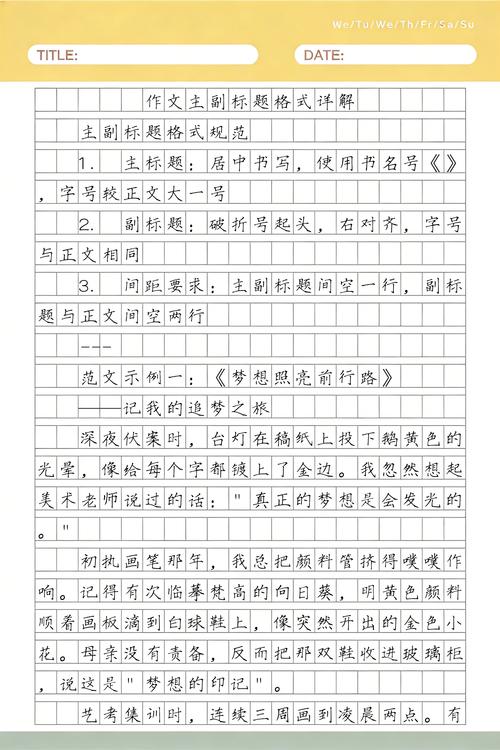 We/Tu/We/Th/Fr/Sa/Su
TITLE: DATE:
作文主副标题格式详解
主副标题格式规范
1. 主标题：居中书写，使用书名号《》
，字号较正文大一号
2. 副标题：破折号起头，右对齐，字号
与正文相同
3. 间距要求：主副标题间空一行，副标
题与正文间空两行
---
范文示例一：《梦想照亮前行路》
——记我的追梦之旅
深夜伏案时，台灯在稿纸上投下鹅黄色的
光晕，像给每个字都镀上了金边。我忽然想起
美术老师说过的话："真正的梦想是会发光的
。"
初执画笔那年，我总把颜料管挤得噗噗作
响。记得有次临摹梵高的向日葵，明黄色颜料
顺着画板滴到白球鞋上，像突然开出的金色小
花。母亲没有责备，反而把那双鞋收进玻璃柜
，说这是"梦想的印记"。
艺考集训时，连续三周画到凌晨两点。有